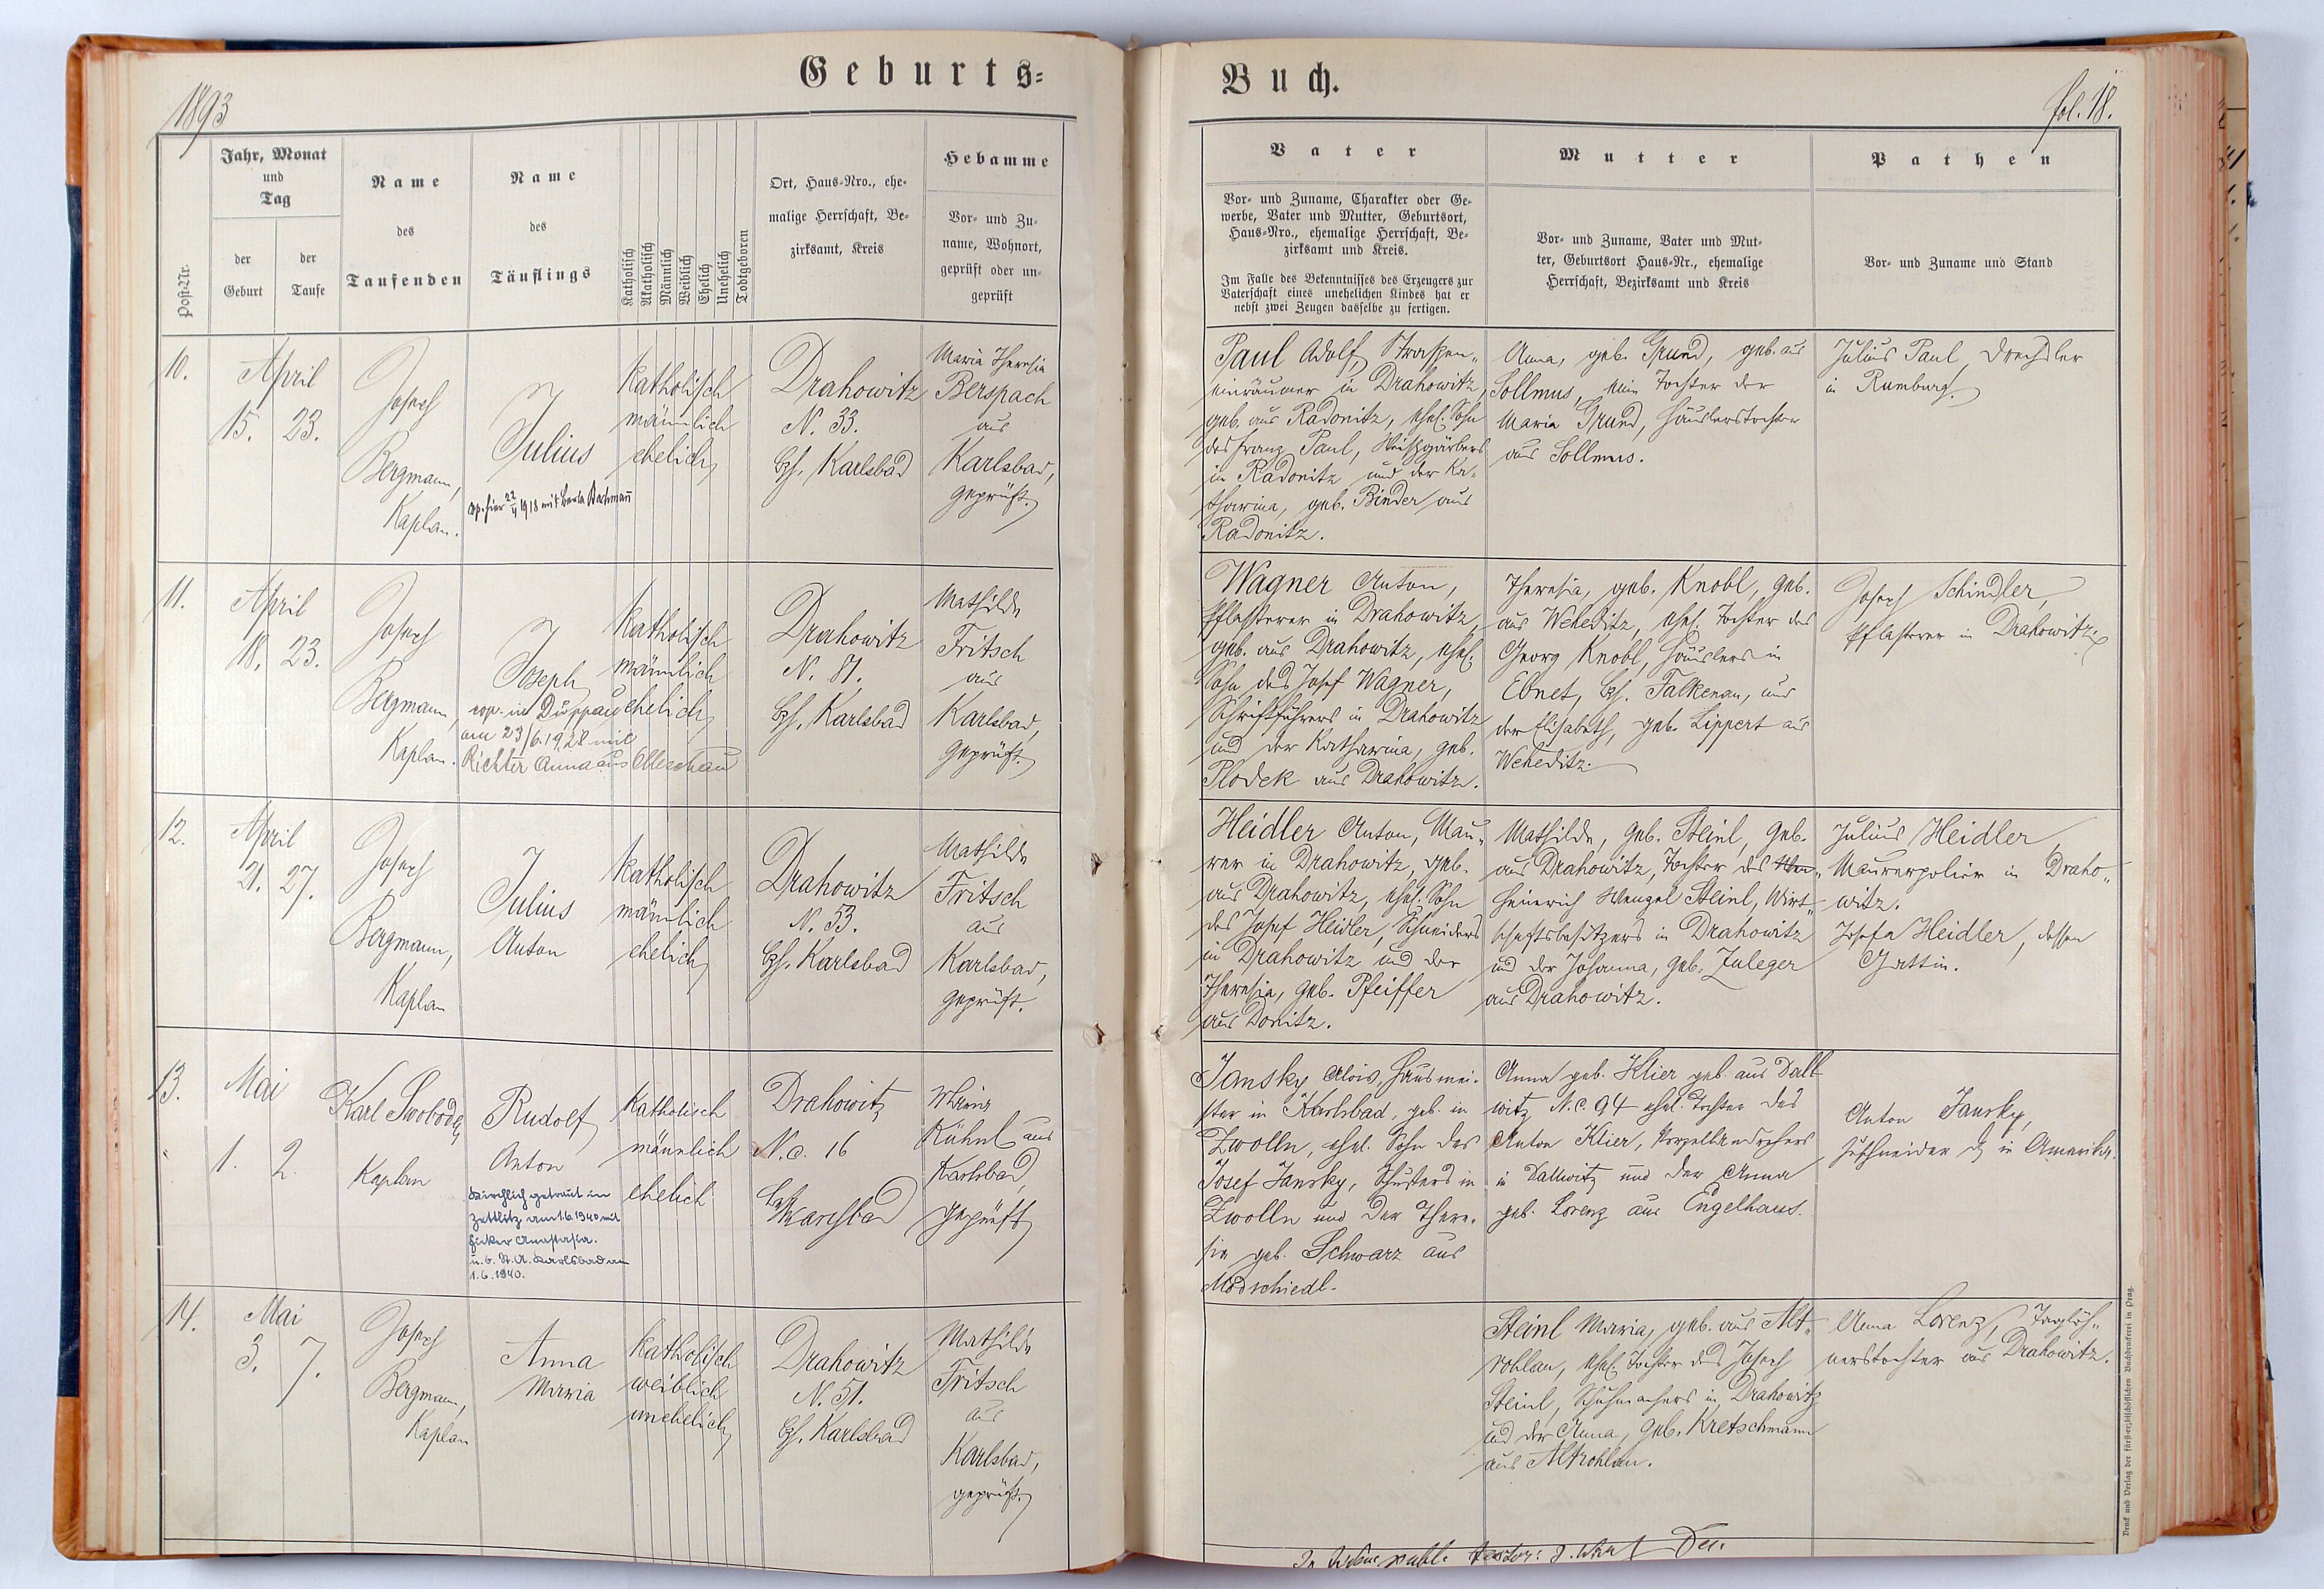 Geburts=
Buch.
1893
fol. 18.
Post-Nr.
Jahr, Monat
und
Tag
der
Geburt
der
Taufe
Name
des
Taufenden
Name
des
Täuflings
Katholisch
Akatholisch
Männlich
Weiblich
Ehelich
Unehelich
Todtgeboren
Ort, Haus=Nro., ehe=
malige Herrschaft, Be=
zirksamt, Kreis
Hebamme
Vor= und Zu=
name, Wohnort,
geprüft oder un=
geprüft
Vater
Vor= und Zuname, Charakter oder Ge=
werbe, Vater und Mutter, Geburtsort,
Haus=Nro., ehemalige Herrschaft, Be=
zirksamt und Kreis.
Im Falle des Bekenntnisses des Erzeugers zur
Vaterschaft eines unehelichen Kindes hat er
nebst zwei Zeugen dasselbe zu fertigen.
Mutter
Vor= und Zuname, Vater und Mut=
ter, Geburtsort Haus=Nr., ehemalige
Herrschaft, Bezirksamt und Kreis
Pathen
Vor= und Zuname und Stand
10.
April
15. 23.
Josef
Bergmann,
Kaplan.
Julius
cop. hier 22/4 1918 mit Berta Bachmann
katholisch
männlich
ehelich
Drahowitz
N. 33.
Bzh. Karlsbad
Maria Theresia
Berspach
aus
Karlsbad,
geprüft.
Paul Adolf, Straßen„
einräumer in Drahowitz,
geb. aus Radonitz, ehel. Sohn
des Franz Paul, Weißgärbers
in Radonitz und der Ka„
tharina, geb. Binder aus
Radonitz.
Anna, geb. Grund, geb. aus
Sollmus, eine Tochter der
Maria Grund, Häuslerstochter
aus Sollmus.
Julius Paul, Drechsler
in Rumburg.
11.
April
18. 23.
Josef
Bergmann,
Kaplan.
Joseph
cop. in Duppau
am 23/6. 1928 mit
Richter Anna aus Olleschau
katholisch
männlich
ehelich
Drahowitz
N. 81.
Bzh. Karlsbad
Mathilde
Fritsch
aus
Karlsbad,
geprüft.
Wagner Anton,
Pflasterer in Drahowitz,
geb. aus Drahowitz, ehel.
Sohn des Josef Wagner,
Schriftführers in Drahowitz
und der Katharina, geb.
Plodek aus Drahowitz.
Theresia, geb. Knobl, geb.
aus Weheditz, ehel. Tochter des
Georg Knobl, Häuslers in
Ebnet, Bzh. Falkenau, und
der Elisabeth, geb. Lippert aus
Weheditz.
Josef Schindler,
Pflasterer in Drahowitz.
12.
April
21. 27.
Josef
Bergmann,
Kaplan
Julius
Anton
katholisch
männlich
ehelich
Drahowitz
N. 53.
Bzh. Karlsbad
Mathilde
Fritsch
aus
Karlsbad,
geprüft.
Heidler Anton, Mau„
rer in Drahowitz, geb.
aus Drahowitz, ehel. Sohn
des Josef Heidler, Schneiders
in Drahowitz und der
Theresia, geb. Pfeiffer
aus Donitz.
Mathilde, geb. Steinl, geb.
aus Drahowitz, Tochter des
Heinrich Wenzel Steinl, Wirt„
schaftsbesitzers in Drahowitz
und der Johanna, geb. Zuleger
aus Drahowitz.
Julius Heidler
Maurerpolier in Draho„
witz.
Josefa Heidler, dessen
Gattin.
13.
Mai
1. 2.
Karl Swoboda,
Kaplan
Rudolf
Anton
Kirchlich getraut in
Zettlitz am 1.6.1940 mit
Anastasia.
u. b. St. A. Karlsbad am
1.6.1940.
katholisch
männlich
ehelich
Drahowitz
N.c. 16
Bzh. Karlsbad
Kühnl aus
Karlsbad,
geprüft
Jansky Alois, Hausmei-
ster in Karlsbad, geb. in
Zwolln, ehel. Sohn des
Josef Jansky, Schusters in
Zwolln und der There-
sia geb. Schwarz aus
Modschiedl.
Anna geb. Klier geb. aus Dall
witz N.C. 94 ehel. Tochter des
Anton Klier, Porzellandrehers
in Dallwitz und der Anna
geb. Lorenz aus Engelhaus.
Anton Jansky,
Zuschneider in Amerika.
14.
Mai
3. 7.
Josef
Bergmann,
Kaplan
Anna
Maria
katholisch
weiblich
unehelich
Drahowitz
N. 51.
Bzh. Karlsbad
Mathilde
Fritsch
aus
Karlsbad,
geprüft.
Steinl Maria, geb. aus Alt„
rohlau, ehel. Tochter des Josef
Steinl, Schuhmachers in Drahowitz
und der Anna, geb. Kretschmann
aus Altrohlau.
Anna Lorenz, Taglöh„
nerstochter aus Drahowitz.
Druck und Verlag der fürsterzbischöflichen Buchdruckerei in Prag.